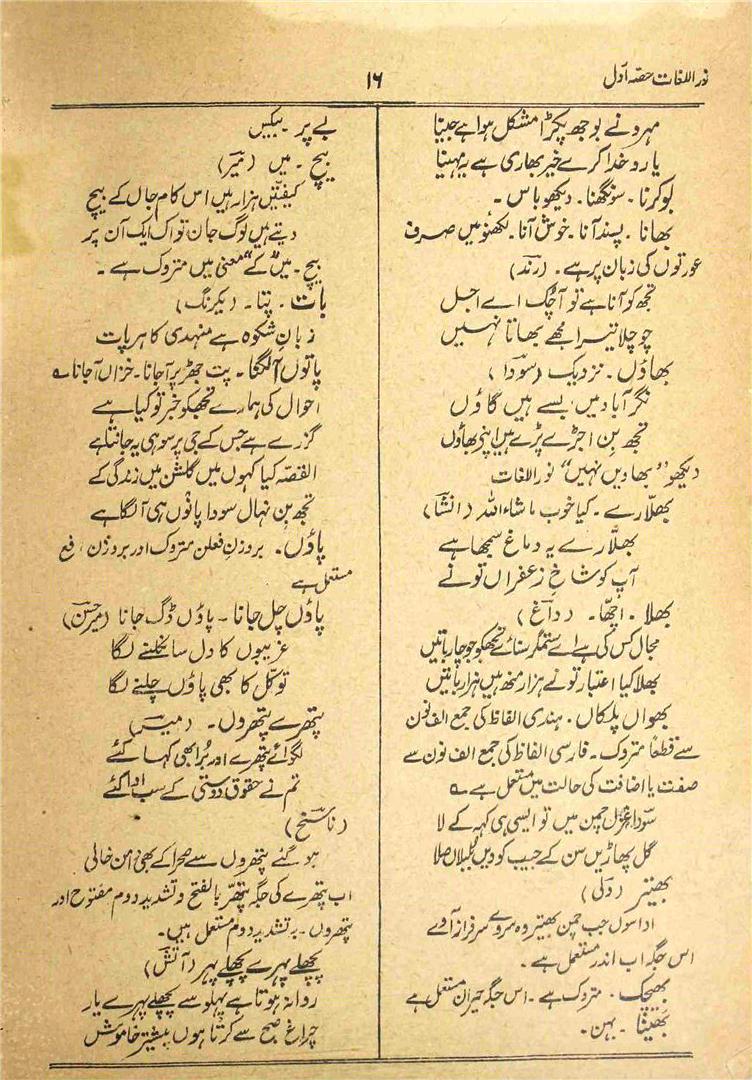 نور اللغات حصہ اول
۱۶
مہرو نے بوجھ پکڑا مشکل ہوا ہے جینا
یارو خدا کرے خیر بھاری ہے یہ مہینا
بو کرنا ۔ سونگھنا ۔ دیکھو باس ۔
بھانا ۔ پسند آنا ۔ خوش آنا ۔ لکھنؤ میں صرف
عورتوں کی زبان پر ہے ۔ (رند)
تجھ کو آنا ہے تو آچک اے اجل
چوچلا تیرا مجھے بھاتا نہیں
بھاؤں ۔ نزدیک (سودا)
نگر آباد میں بسے ہیں گاؤں
تجھ بن اجڑے پڑے ہیں اپنی بھاؤں
دیکھو ’’بھاویں نہیں‘‘ نور اللغات
بھلّا رے ۔ کیا خوب ماشاء اللہ (انشا)
بھلّا رے یہ دماغ سمجھا ہے
آپ کو شاخِ زعفراں تو نے
بھلا ۔ اچھا ۔ (داغ)
مجال کس کی ہے اے ستمگر سنائے تجھکو جو چار باتیں
بھلا کیا اعتبار تو نے ہزار منھ ہیں ہزار باتیں
بھواں پلکاں ۔ ہندی الفاظ کی جمع الف نون
سے قطعاً متروک ۔ فارسی الفاظ کی جمع الف نون سے
صفت یا اضافت کی حالت میں مستعمل ہے ؎
سودا غزل چمن میں تو ایسی ہی کہہ کے لا
گل پھاڑیں سن کے جیب کو دیں بلبلاں صلا
بھیتر (ولی)
اداسوں جب چمن بھیتر وہ سروِ سرفراز آوے
اس جگہ اب اندر مستعمل ہے ۔
بھیچک ۔ متروک ہے ۔ اس جگہ حیران مستعمل ہے
بھینا ۔ بہن ۔
بے پر ۔ بیکیں
بیچ ۔ میں (میر)
کیفیتیں ہزار ہیں اس کام جاں کے بیچ
دیتے ہیں لوگ جان تو اک ایک آن پر
بیچ ۔ ’’میں‘‘ کے معنی میں متروک ہے ۔
پات ۔ پتا ۔ (یکرنگ)
زبانِ شکوہ ہے منہدی کا ہر پات
پاتوں آ لگنا ۔ پت جھڑ پر آجانا ۔ خزاں آجانا ؎
احوال کی ہمارے تجھکو خبر تو کیا ہے
گزرے ہے جس کے جی پر سو ہی یہ جانتا ہے
القصہ کیا کہوں میں گلشن میں زندگی کے
تجھ بن نہال سودا پاتوں ہی آ لگا ہے
پاؤں ۔ بروزنِ فعلن متروک اور بروزن فع
مستعمل ہے
پاؤں چل جانا ۔ پاؤں ڈگ جانا (میر حسن)
غریبوں کا دل سا نکلنے لگا
توکل کا بھی پاؤں چلنے لگا
پتھرے پتھروں ۔ (میر)
لگوائے پتھرے اور برا بھی کہا گئے
تم نے حقوق دوستی کے سب ادا کئے
(ناسخ)
ہو گئے پتھروں سے صحرا کے بھی دامن خالی
اب پتھرے کی جگہ پتھّر بالفتح و تشدید دوم مفتوح اور
پتھروں ۔ بر تشدید دوم مستعمل ہیں ۔
پچھلے پہرے پچھلے پہر (آتش)
روانہ ہوتا ہے پہلو سے پچھلے پہرے یار
چراغ صبح سے کرتا ہوں پیشتر خاموش